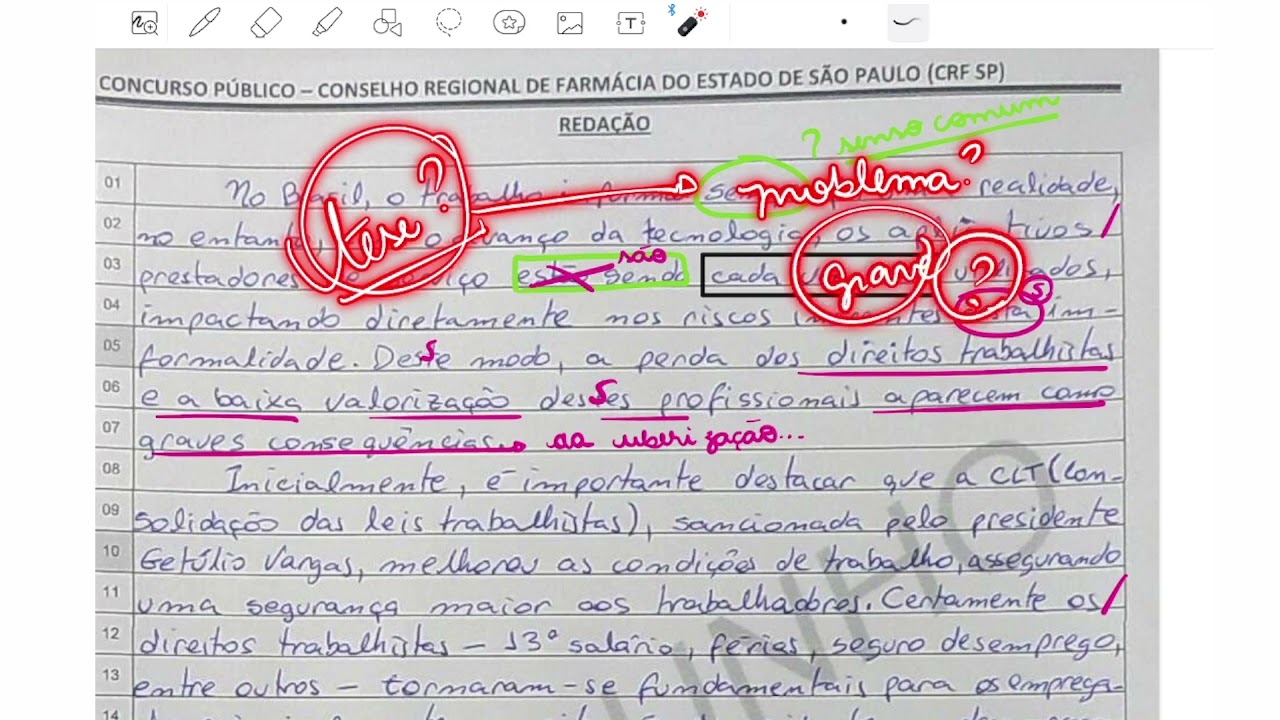 CONCURSO PÚBLICO – CONSELHO REGIONAL DE FARMÁCIA DO ESTADO DE SÃO PAULO (CRF SP)
REDAÇÃO
? senso comum
tese? problema?
01 No Brasil, o trabalho realidade,
02 no entanto, o avanço da tecnologia, os aplicativos
grave?
são
03 prestadores de serviço estão sendo cada utilizados,
04 impactando diretamente nos riscos im-
s
05 formalidade. Desse modo, a perda dos direitos trabalhistas
06 e a baixa valorização desses profissionais aparecem como
07 graves consequências. da uberização...
08 Inicialmente, é importante destacar que a CLT (Con-
09 solidação das leis trabalhistas), sancionada pelo presidente
10 Getúlio Vargas, melhorou as condições de trabalho, assegurando
11 uma segurança maior aos trabalhadores. Certamente os
12 direitos trabalhistas – 13º salário, férias, seguro desemprego,
13 entre outros – tornaram-se fundamentais para os emprega-
14